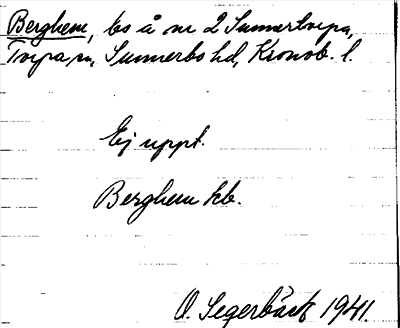 Berghem, bs å nr 2 Sunnertorpa,
Torpa sn, Sunnerbo hd, Kronob. l.
Ej uppt.
Berghem hb.
O. Segerbäck 1941.